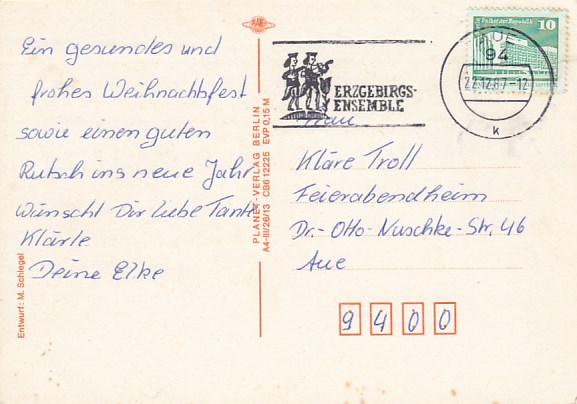 Ein gesundes und
frohes Weihnachtsfest
sowie einen guten
Rutsch ins neue Jahr
wünscht Dir liebe Tante
Klärle
Deine Elke
Entwurf: M. Schlegel
PLANET
PLANET-VERLAG BERLIN
A4-III/26/13 CB6 12225 EVP 0,15 M
ERZGEBIRGS-
ENSEMBLE
Palast der Republik
10
AUE
94
22.12.87-12
k
Frau
Kläre Troll
Feierabendheim
Dr.-Otto-Nuschke-Str. 46
Aue
9400